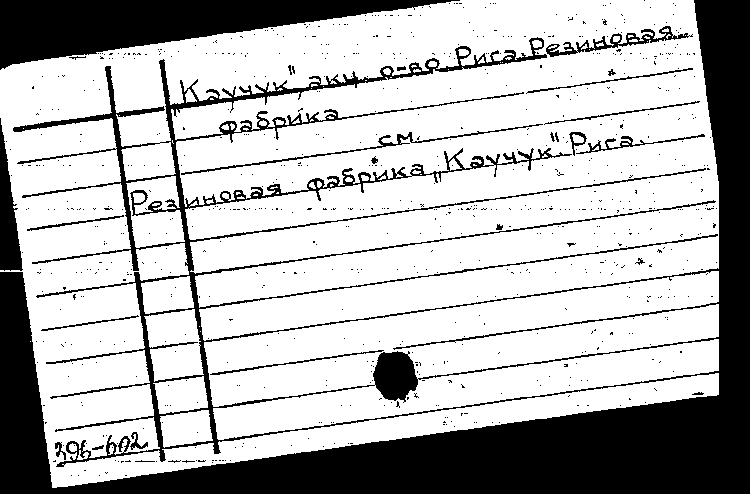 „Каучук", акц. о-во. Рига. Резиновая
фабрика
см.
Резиновая фабрика „Каучук". Рига.
396-602